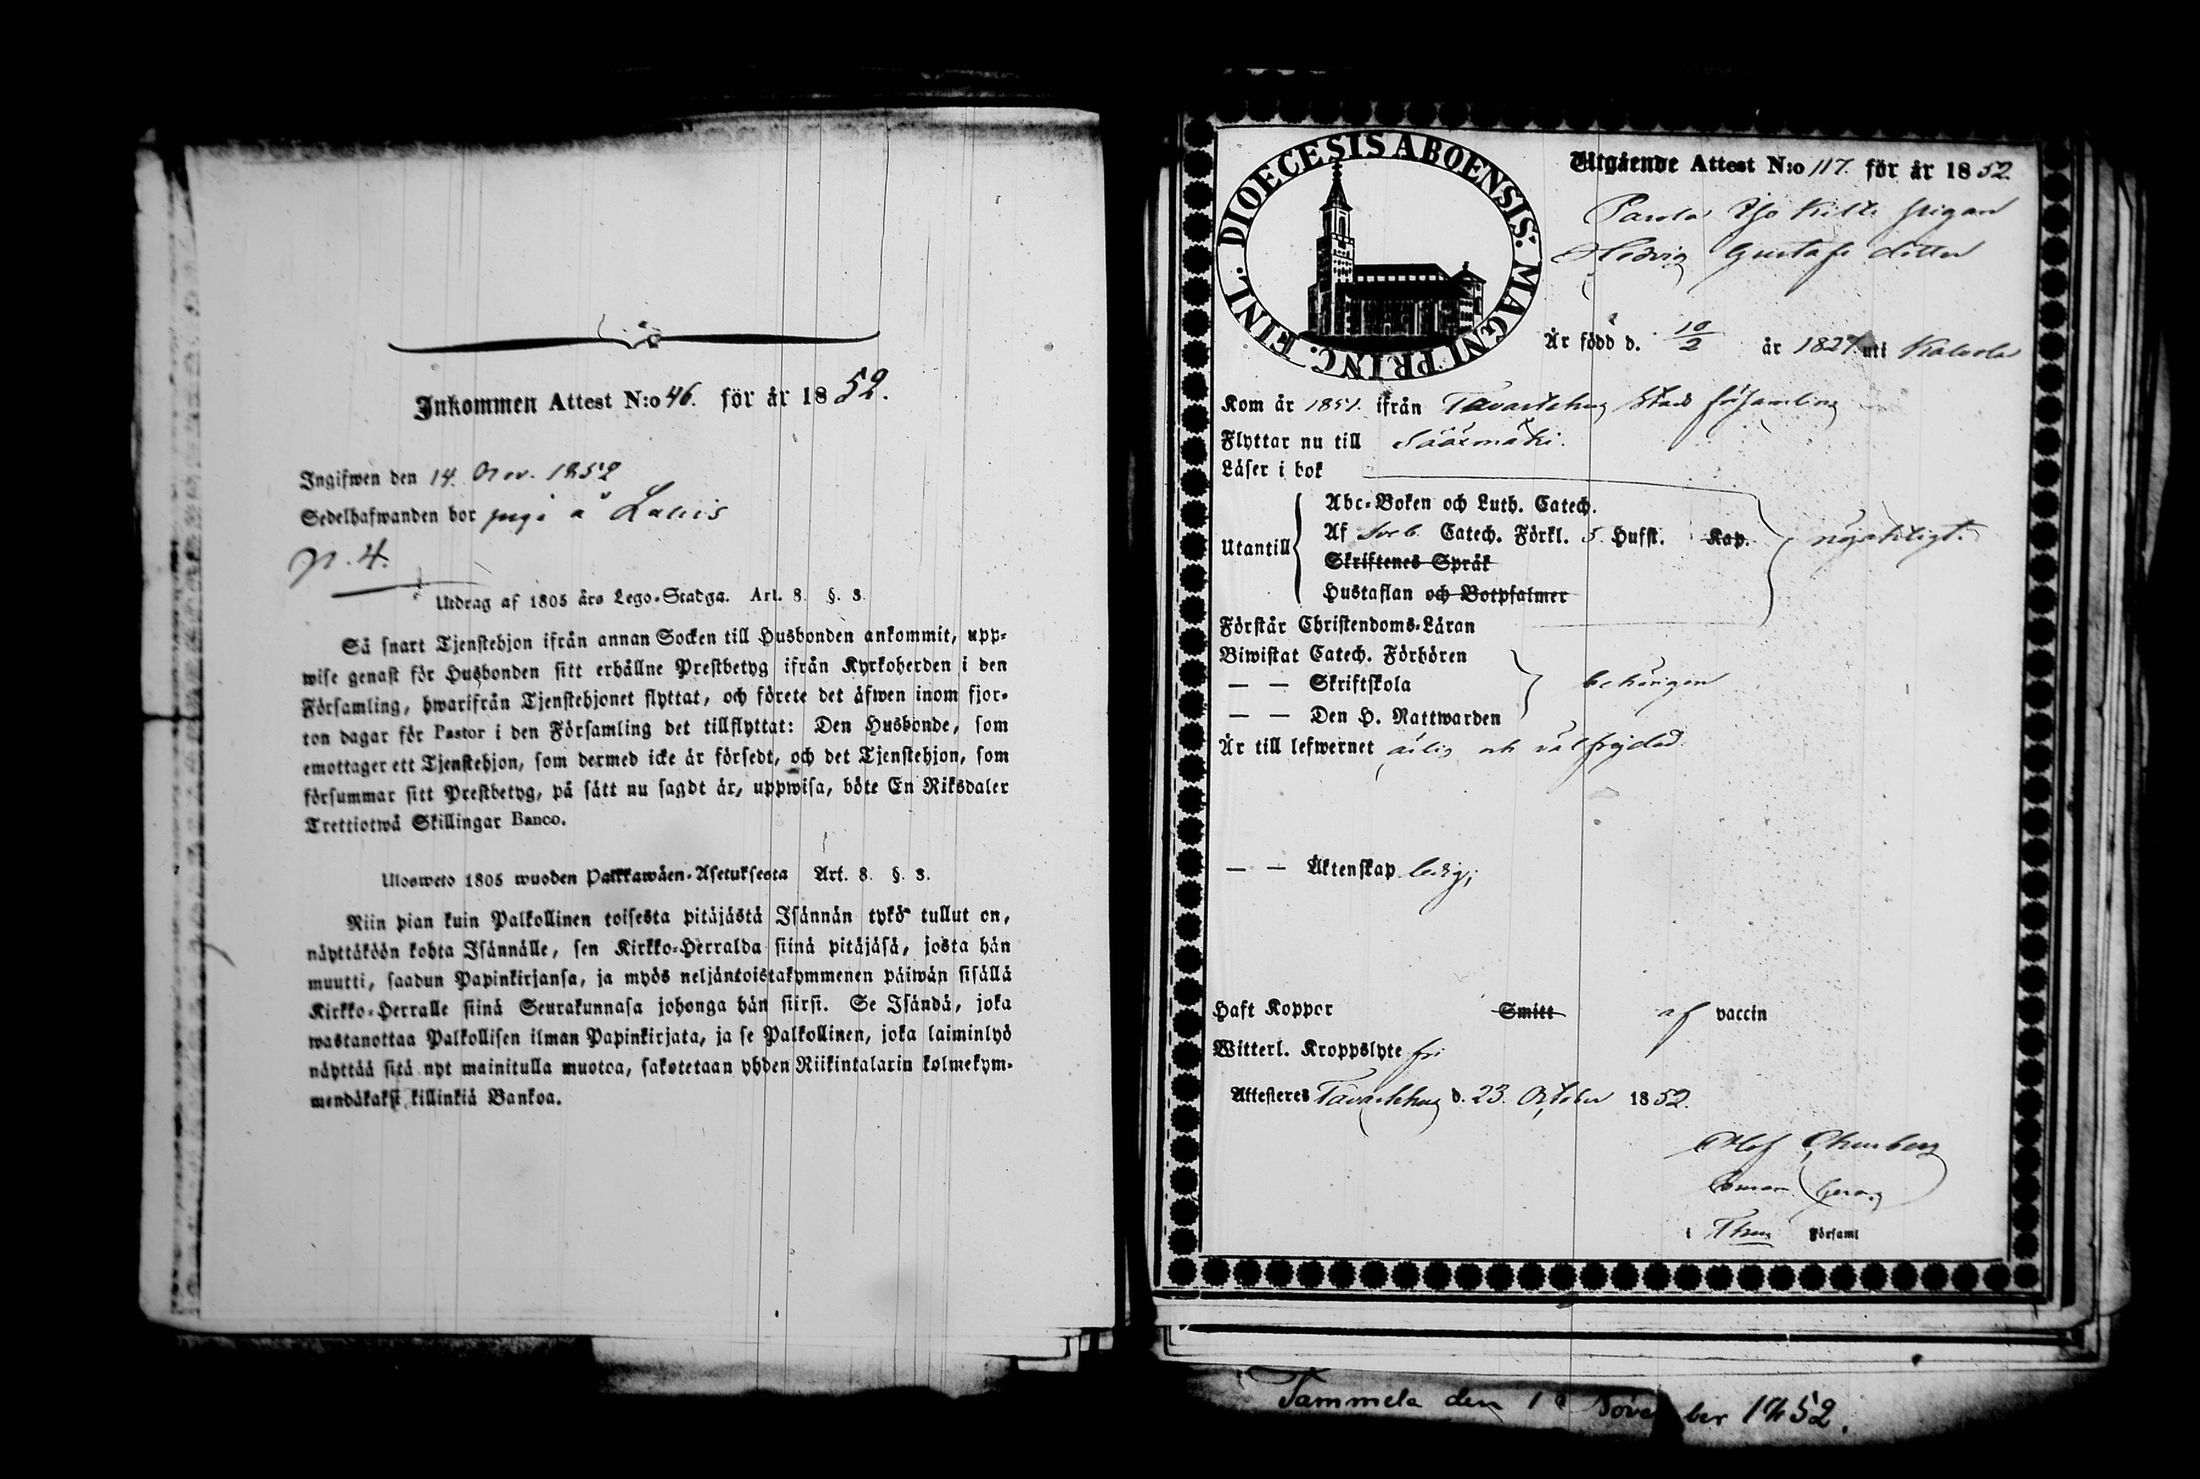 Inkommen Attest N:o 46. för år 1852.
Ingifwen den 14. Nov. 1852
Sedelhafwanden bor piga å Lalais
p. 4.
Utdrag af 1805 års Lego-Stadga. Art. 8. §. 3.
Så snart Tjenstehjon ifrån annan Socken till Husbonden ankommit, upp-
wise genast för Husbonden sitt erhållne Prestbetyg ifrån Kyrkoherden i den
Församling, hwarifrån Tjenstehjonet flyttat, och förete det äfwen inom fjor-
ton dagar för Pastor i den Församling det tillflyttat: Den Husbonde, som
emottager ett Tjenstehjon, som dermed icke är försedt, och det Tjenstehjon, som
försummar sitt Prestbetyg, på sätt nu sagdt är, uppwisa, böte En Riksdaler
Trettiotwå Skillingar Banco.
Ulosweto 1805 wuoden Palkkawäen-Asetuksesta Art. 8. §. 3.
Niin pian kuin Palkollinen toisesta pitäjästä Isännän tykö tullut on,
näyttäköön kohta Isännälle, sen Kirkko-Herralda siinä pitäjäsä, josta hän
muutti, saadun Papinkirjansa, ja myös neljäntoistakymmenen päiwän sisällä
Kirkko-Herralle siinä Seurakunnasa johonga hän siirsi. Se Isändä, joka
wastanottaa Palkollisen ilman Papinkirjata, ja se Palkollinen, joka laiminlyö
näyttää sitä nyt mainitulla muotoa, sakotetaan yhden Riikintalarin kolmekym-
mendäkaksi killinkiä Bankoa.
DIOECESIS ABOENSIS. MAGNI PRINC. FINL.
Utgående Attest N:o 117. för år 1852.
Parola pigan
Hedvig Gustafs dotter
Är född d. 10/2 år 1827 uti Kalvola
Kom år 1851. ifrån Tavastehus Stads församling
Flyttar nu till Sääxmäki.
Läser i bok
Abc-Boken och Luth. Catech.
Utantill Af Sveb. Catech. Förkl. 5 Hufst. Kap. nöjaktigt.
Skriftenes Språk
Hustaflan och Botpsalmer
Förstår Christendoms-Läran
Biwistat Catech. Förhören
— — Skriftskola behörigen
— — Den H. Nattwarden
Är till lefwernet ärlig och välfrejdad.
— — Äktenskap ledig;
Haft Koppor Smitt af vaccin
Witterl. Kroppslyte fri
Attesteras Tavastehus d. 23. October 1852.
Olof
i Församl
Tammela den 1 November 1852.